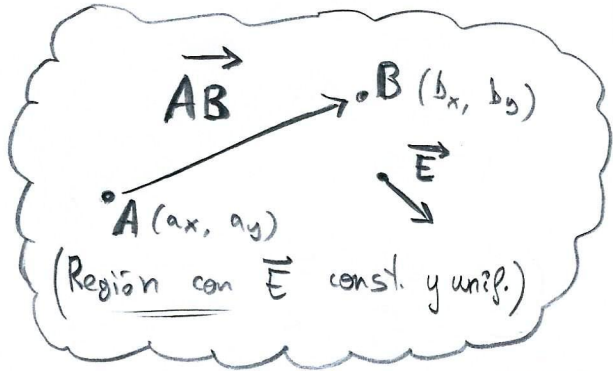 AB
B (bx, by)
E
A (ax, ay)
(Región con E const. y unif.)